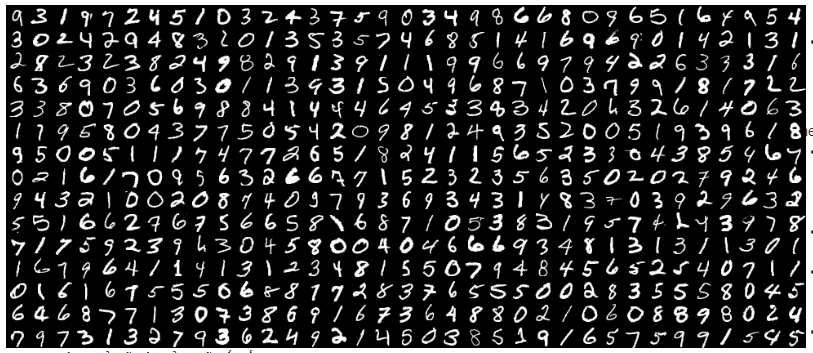 9 3 1 9 7 2 4 5 1 0 3 2 4 3 7 5 9 0 3 4 9 8 6 6 8 0 9 6 5 1 6 4 9 5 4
3 0 2 4 2 9 4 8 3 2 0 1 3 5 3 5 7 4 6 8 5 1 4 1 6 9 6 9 0 1 4 2 1 3 1
2 8 2 3 2 3 8 2 4 9 8 2 9 1 3 9 1 1 1 9 9 6 6 9 7 9 4 2 2 6 3 3 3 1 6
6 3 6 9 0 3 6 0 3 0 1 1 3 9 3 1 5 0 4 9 6 8 7 1 0 3 7 9 9 1 8 1 7 2 2
3 3 8 0 7 0 5 6 9 8 8 4 1 4 4 4 6 4 5 3 3 8 3 4 2 0 6 3 2 6 1 4 0 6 3
1 7 9 5 8 0 4 3 7 7 5 0 5 4 2 0 9 8 1 2 4 9 3 5 2 0 0 5 1 9 3 9 6 1 8
9 5 0 0 5 1 1 1 7 4 7 7 2 6 5 1 8 2 4 1 1 5 6 5 2 3 3 0 4 3 8 5 4 6 7
0 2 1 6 1 7 0 9 5 6 3 2 6 6 7 7 1 5 2 3 2 3 5 6 3 5 0 2 0 2 7 9 2 4 6
9 4 3 2 1 0 0 2 0 8 7 4 0 9 7 9 3 6 9 3 4 3 1 4 8 3 7 0 3 9 2 9 6 3 2
5 5 1 6 6 2 7 6 7 5 6 6 5 8 1 6 8 7 1 0 5 3 8 3 1 9 5 7 4 4 4 3 9 7 8
7 1 7 5 9 2 3 9 4 3 0 4 5 8 0 0 4 0 4 6 6 6 9 3 4 8 1 3 1 3 1 1 3 0 1
1 6 7 9 6 4 1 1 4 1 3 1 2 3 4 8 1 5 5 0 7 9 4 8 4 5 6 5 2 5 4 0 7 1 1
0 1 6 1 6 7 5 5 5 0 6 8 8 1 7 2 8 3 7 6 5 5 5 0 0 2 8 3 5 5 5 8 0 4 5
6 4 6 8 7 7 1 3 0 7 3 8 6 9 1 6 7 3 6 4 8 8 0 2 1 0 6 0 8 8 9 8 0 2 4
7 9 7 3 1 3 2 7 9 3 6 2 4 9 2 1 4 5 0 3 8 5 1 9 1 6 5 7 5 9 9 1 5 4 5